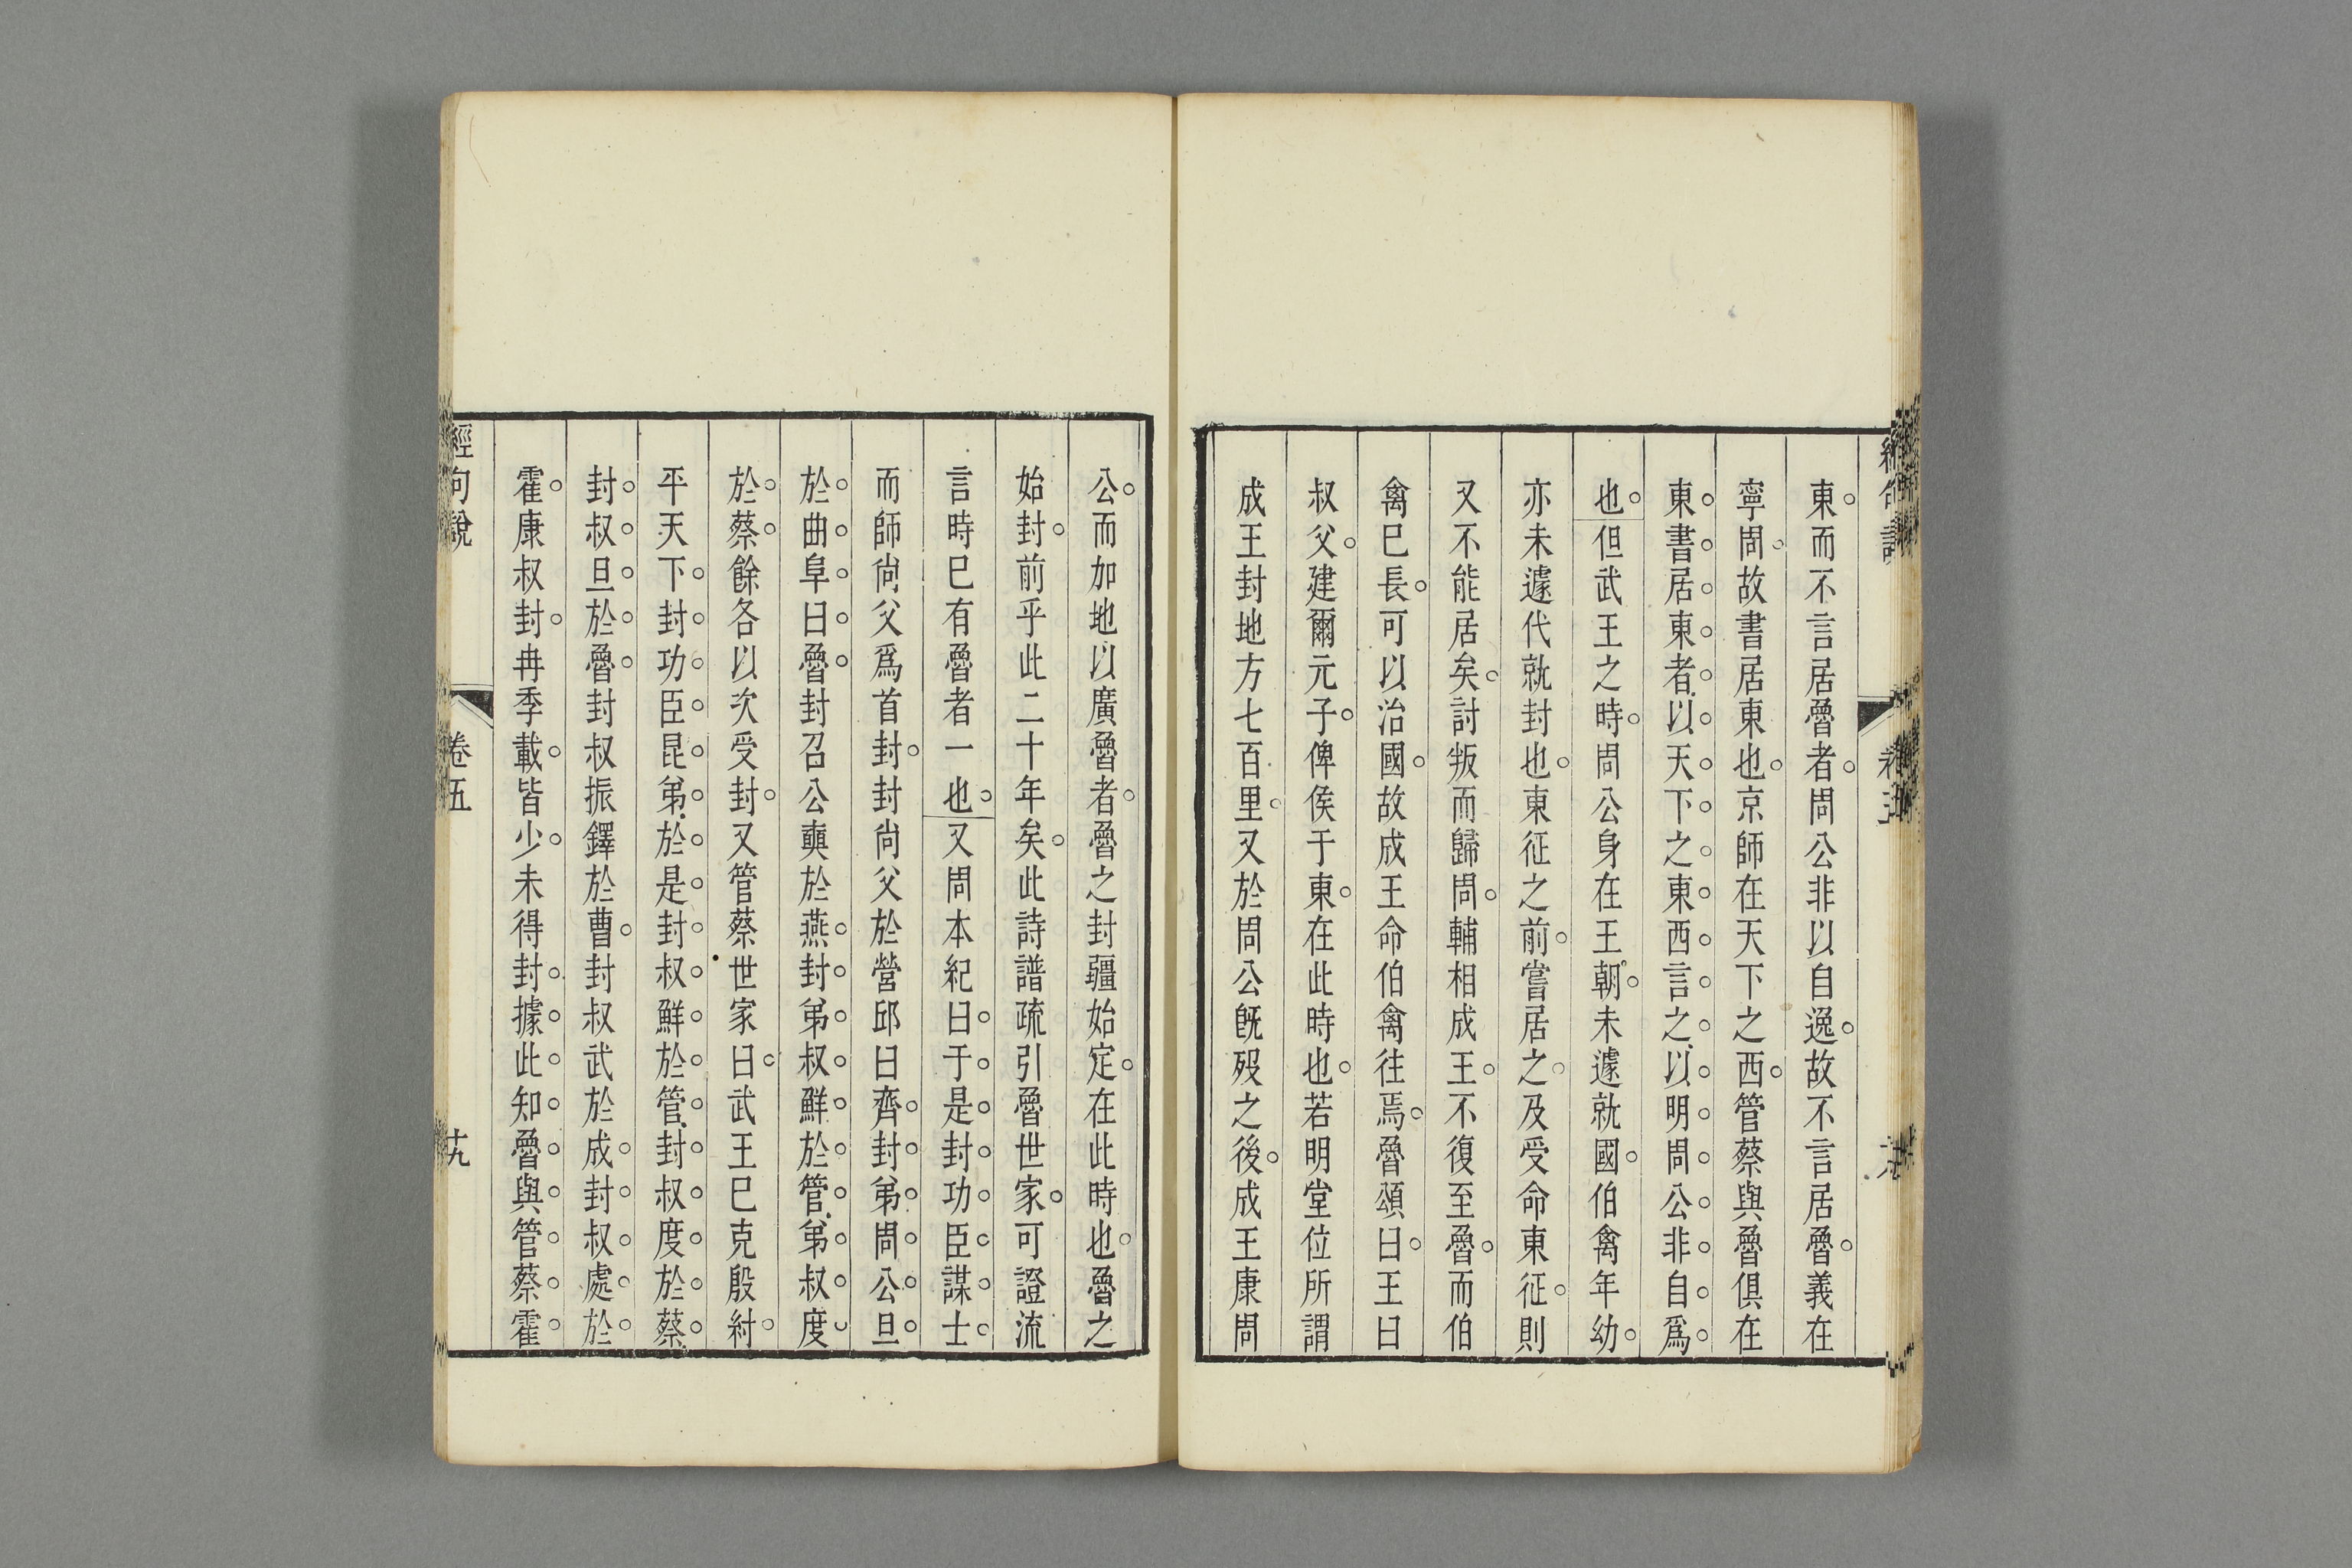 東而不言居魯者周公非以自逸故不言居魯義在
寧周故書居東也京師在天下之西管蔡與魯俱在
東書居東者以天下之東西言之以明周公非自爲
也但武王之時周公身在王朝未遽就國伯禽年幼
亦未遽代就封也東征之前嘗居之及受命東征則
又不能居矣討叛而歸周輔相成王不復至魯而伯
禽已長可以治國故成王命伯禽往焉魯頌曰王曰
叔父建爾元子俾侯于東在此時也若明堂位所謂
成王封地方七百里又於周公旣歿之後成王康周
公而加地以廣魯者魯之封疆始定在此時也魯之
始封前乎此二十年矣此詩譜疏引魯世家可證流
言時已有魯者一也又周本紀曰于是封功臣謀士
而師尙父爲首封封尙父於營邱曰齊封弟周公旦
於曲阜曰魯封召公奭於燕封弟叔鮮於管弟叔度
於蔡餘各以次受封又管蔡世家曰武王已克殷紂
平天下封功臣昆弟於是封叔鮮於管封叔度於蔡
封叔旦於魯封叔振鐸於曹封叔武於成封叔處於
霍康叔封冉季載皆少未得封據此知魯與管蔡霍
經句說 卷五 十九